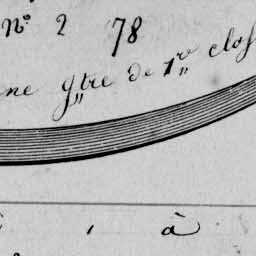 N° 2 78
ne gtre de 1re clas
à